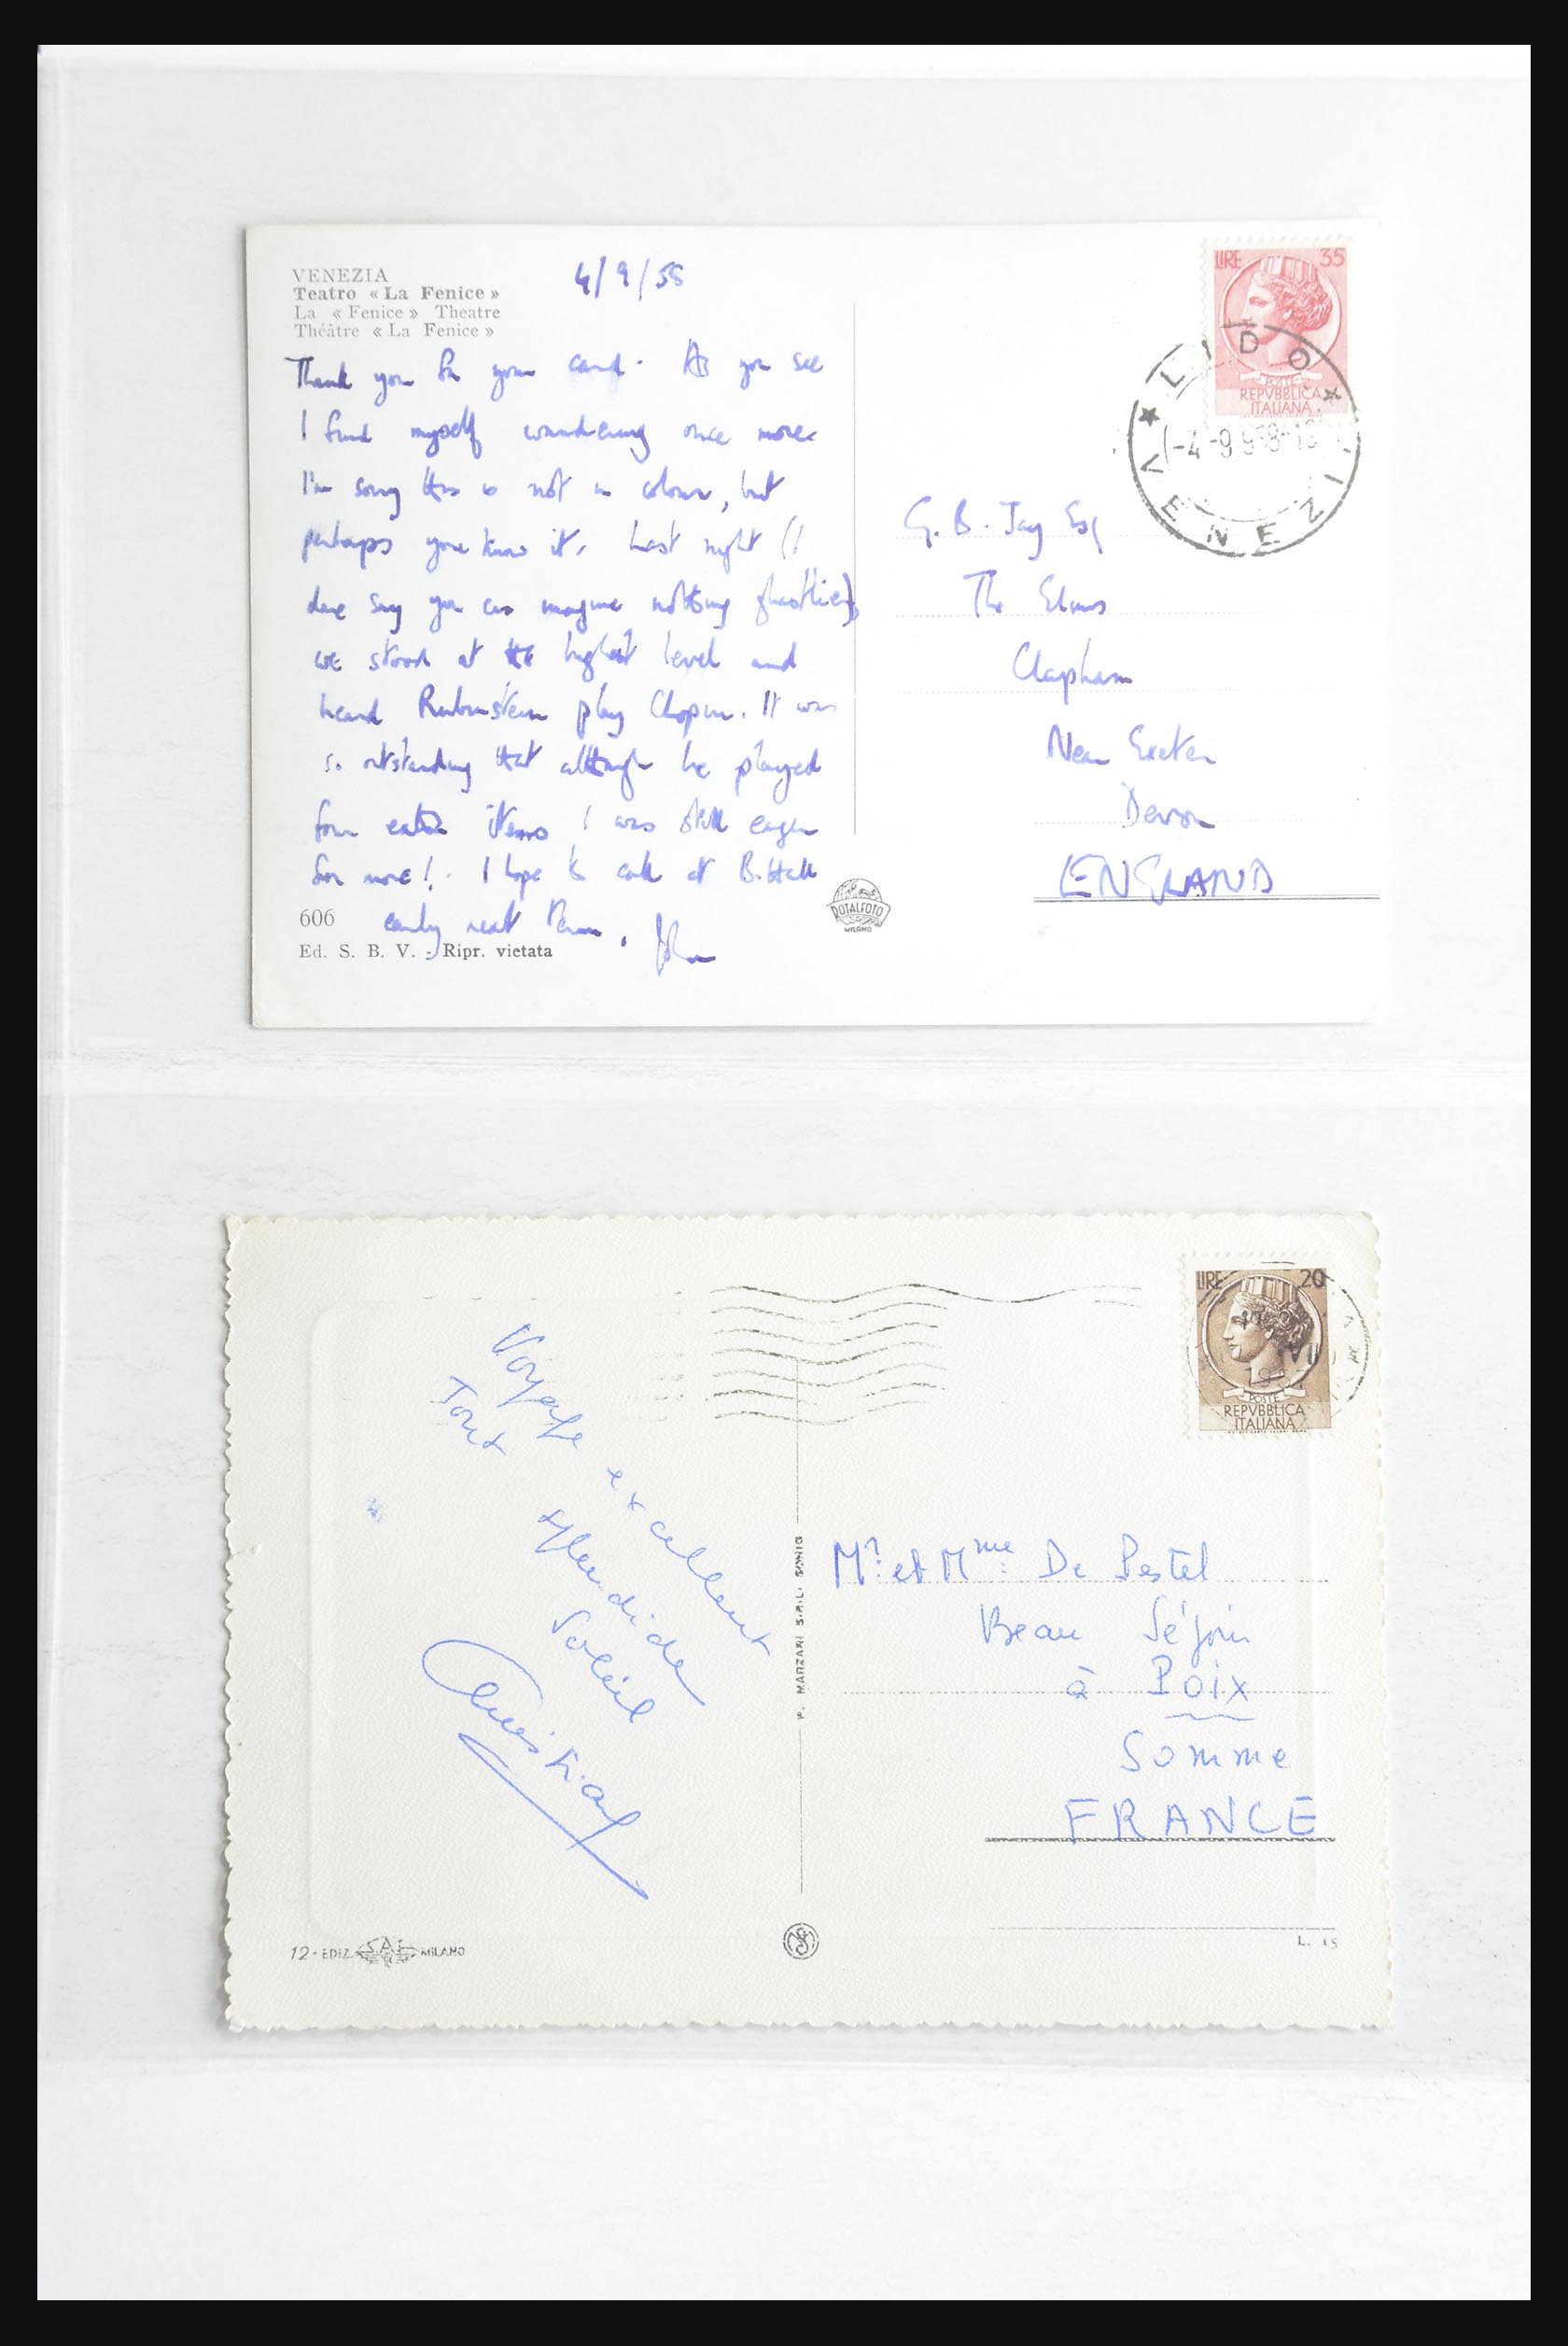 VENEZIA
Teatro « La Fenice »
La « Fenice » Theatre
Théâtre « La Fenice »
4/9/58
Thank you for your card. As you see
I find myself wandering once more
I'm sorry this is not in colour, but
perhaps you know it. Last night (I
dare say you can imagine nothing ghastlier)
we stood at the highest level and
heard Rubinstein play Chopin. It was
so outstanding that although he played
four extra items I was still eager
for more! I hope to call at
early next Term. John
606
Ed. S. B. V. - Ripr. vietata
ROTALFOTO
MILANO
LIRE 35
POSTE
REPVBBLICA
ITALIANA
LIDO
VENEZIA
G. B. Jay Esq
The Elms
Clapham
Near Exeter
Devon
ENGLAND
Voyage excellent
Tout splendide
Soleil
Christian
P. MARZARI S.R.L. SCHIO
12 - EDIZ. SAF MILANO
LIRE 20
POSTE
REPVBBLICA
ITALIANA
Mr. et Mme. De Pestel
Beau Séjour
à Poix
Somme
FRANCE
L. 15